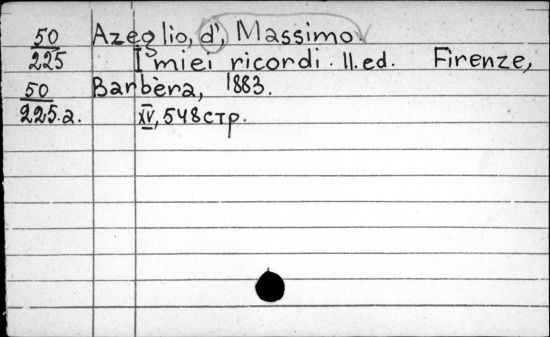 50 Azeglio, d', Massimo.
225 I miei ricordi. II. ed. Firenze,
50 Barbèra, 1883.
225.a. XV, 548 стр.